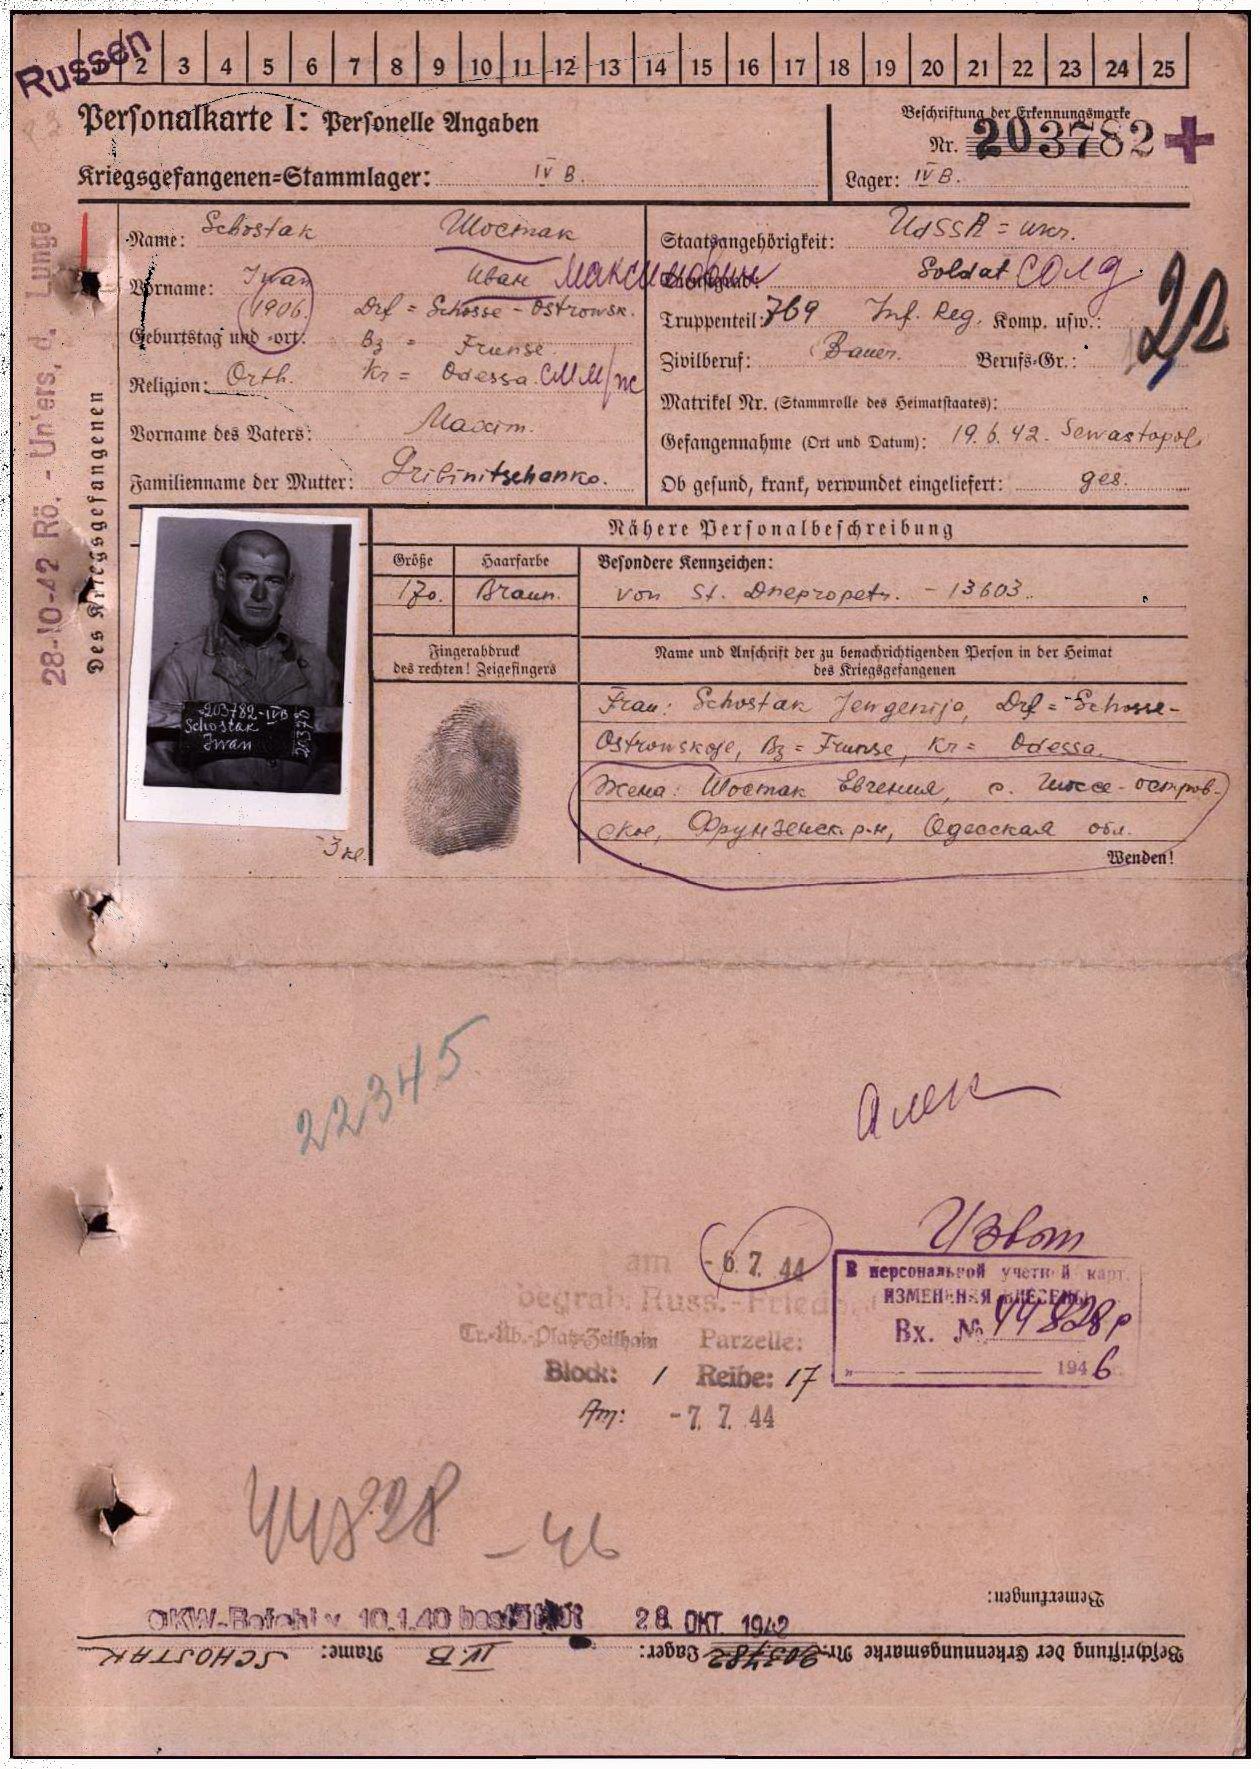 Russen
1 2 3 4 5 6 7 8 9 10 11 12 13 14 15 16 17 18 19 20 21 22 23 24 25
Personalkarte I: Personelle Angaben
Beschriftung der Erkennungsmarke
Nr. 203782 +
Kriegsgefangenen=Stammlager: IV B.
Lager: IV B.
28-10-42 Rö. - Unters. d. Lunge
Des Kriegsgefangenen
Name: Schostak Шостак
Vorname: Iwan Иван Максимович
Geburtstag und -ort: 1906. Drf = Schosse - Ostrowsk.
Bz = Frunse.
Religion: Orth. Kr = Odessa. СММ/пс
Vorname des Vaters: Maxim.
Familienname der Mutter: Gribinitschenko.
Staatsangehörigkeit: UdSSR = ukr.
Dienstgrad: Soldat солд
Truppenteil: 769 Inf. Reg. Komp. usw.:
Zivilberuf: Bauer. Berufs-Gr.:
Matrikel Nr. (Stammrolle des Heimatstaates):
Gefangennahme (Ort und Datum): 19.6.42. Sewastopol
Ob gesund, krank, verwundet eingeliefert: ges.
Nähere Personalbeschreibung
Größe Haarfarbe Besondere Kennzeichen:
170. Braun. von St. Dnepropetr. - 13603.
Fingerabdruck
des rechten! Zeigefingers
Name und Anschrift der zu benachrichtigenden Person in der Heimat
des Kriegsgefangenen
203782-IVB
Schostak
Iwan
Frau: Schostak Jewgenija, Drf = Schosse-
Ostrowskoje, Bz = Frunse, Kr = Odessa.
Жена: Шостак Евгения, с. Шоссе-остров-
ское, Фрунзенск. р-н, Одесская обл.
Wenden!
22345
Извот
am - 6. 7. 44
begrab. Russ.-Friedh.
Tr.-Üb.-Platz-Zeithain Parzelle:
Block: 1 Reihe: 17
Am: - 7. 7. 44
В персональной учетной карт.
ИЗМЕНЕНИЯ ВНЕСЕНЫ
Вх. № 44828р
„ 1946
44828 - 46
Bemerkungen:
OKW-Befehl v. 10.1.40 bestätigt 28. OKT. 1942
Beschriftung der Erkennungsmarke Nr. 203782 Lager: IV B Name: SCHOSTAK